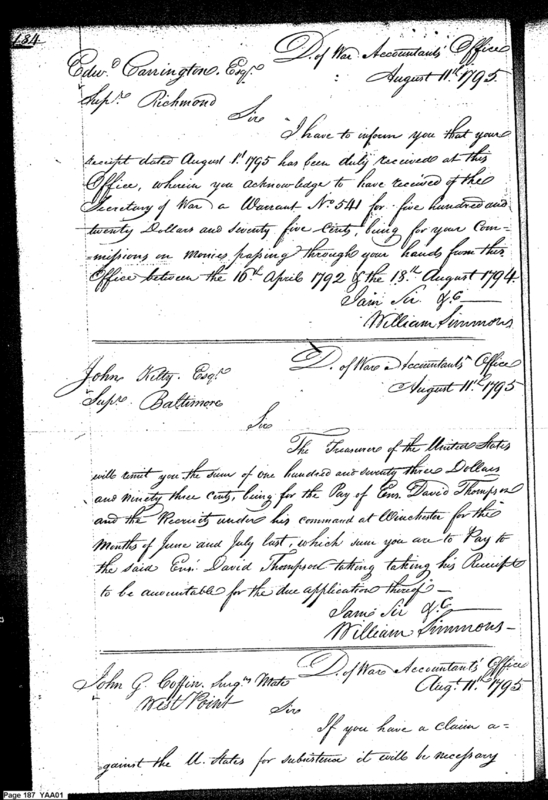 184
D. of War Accountants' Office
August 11th 1795
Edwd Carrington. Esqr
Supr Richmond
Sir
I have to inform you that your
receipt dated August 1st 1795 has been duly received at this
Office, wherein you acknowledge to have received of the
Secretary of War a Warrant No 541 for five hundred and
twenty Dollars and seventy five Cents being for your Com-
missions on monies passing through your hands from this
Office between the 16th April 1792 & the 18th August 1794
I am Sir &C
William Simmons
D. of War Accountants' Office
August 11th 1795
John Kilty. Esqr
Supr Baltimore
Sir
The Treasurer of the United States
will remit you the sum of one hundred and seventy three Dollars
and ninety three cents, being for the Pay of Ens. David Thompson
and the Recruits under his command at Winchester for the
Months of June and July last, which sum you are to Pay to
the said Ensn David Thompson taking taking his Receipt
to be accountable for the due application thereof—
I am Sir &C
William Simmons
D. of War Accountants' Office
Augt 11th 1795
John G. Coffin. Surgns Mate
West Point
Sir
If you have a claim a-
gainst the U. States for subsistence it will be necessary
Page 187 YAA01